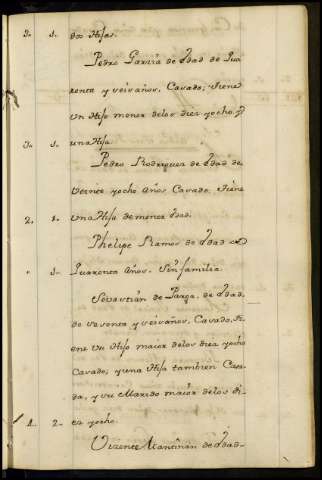 3. 1. dos Hijas.
Pedro Garzia de edad de Qua
renta y seis años, Casado, tiene
un Hijo menor delos diez yocho, y
3. 1. una Hija.
Pedro Rodriguez de edad de
veinte yocho años Casado. tiene
2. 1. una Hija de menor edad.
Phelipe Ramos de edad de
1. Quarenta años. sin familia.
Sevastian de edad
de sesenta y seis años. Casado, ti
ene un Hijo maior delos diez yocho
Casado; y una Hija tambien Casa
da, y su Marido maior de los di
4. 2. ez yocho.
Vizente de edad